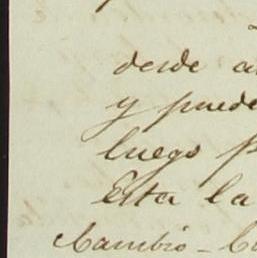 desde
y puede
luego
Esta la
Cambio -